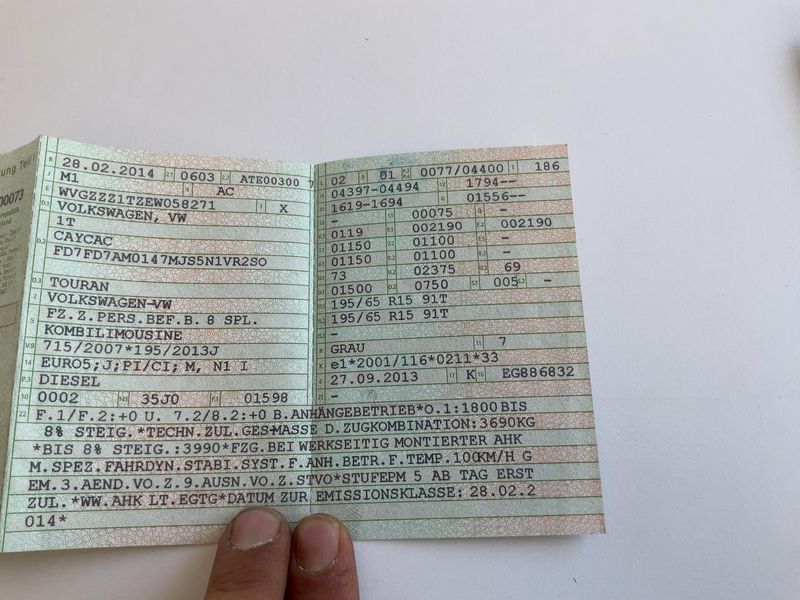 ung Teil I
00073
28.02.2014 0603 ATE00300 7
M1 AC
WVGZZZ1TZEW058271 X
VOLKSWAGEN, VW
1T
CAYCAC
FD7FD7AM0147MJS5N1VR2SO
TOURAN
VOLKSWAGEN-VW
FZ.Z.PERS.BEF.B. 8 SPL.
KOMBILIMOUSINE
715/2007*195/2013J
EURO5;J;PI/CI; M, N1 I
DIESEL
0002 35J0 01598
02 01 0077/04400 186
04397-04494 1794--
1619-1694 01556--
- 00075 -
0119 002190 002190
01150 01100 -
01150 01100 -
73 02375 69
01500 0750 005 -
195/65 R15 91T
195/65 R15 91T
-
GRAU 7
e1*2001/116*0211*33
27.09.2013 K EG886832
22 F.1/F.2:+0 U. 7.2/8.2:+0 B.ANHÄNGEBETRIEB*O.1:1800 BIS
8% STEIG.*TECHN.ZUL.GES-MASSE D.ZUGKOMBINATION:3690KG
*BIS 8% STEIG.:3990*FZG.BEI WERKSEITIG MONTIERTER AHK
M.SPEZ.FAHRDYN.STABI.SYST.F.ANH.BETR.F.TEMP.100KM/H G
EM.3.AEND.VO.Z.9.AUSN.VO.Z.STVO*STUFEPM 5 AB TAG ERST
ZUL.*WW.AHK LT.EGTG*DATUM ZUR EMISSIONSKLASSE: 28.02.2
014*